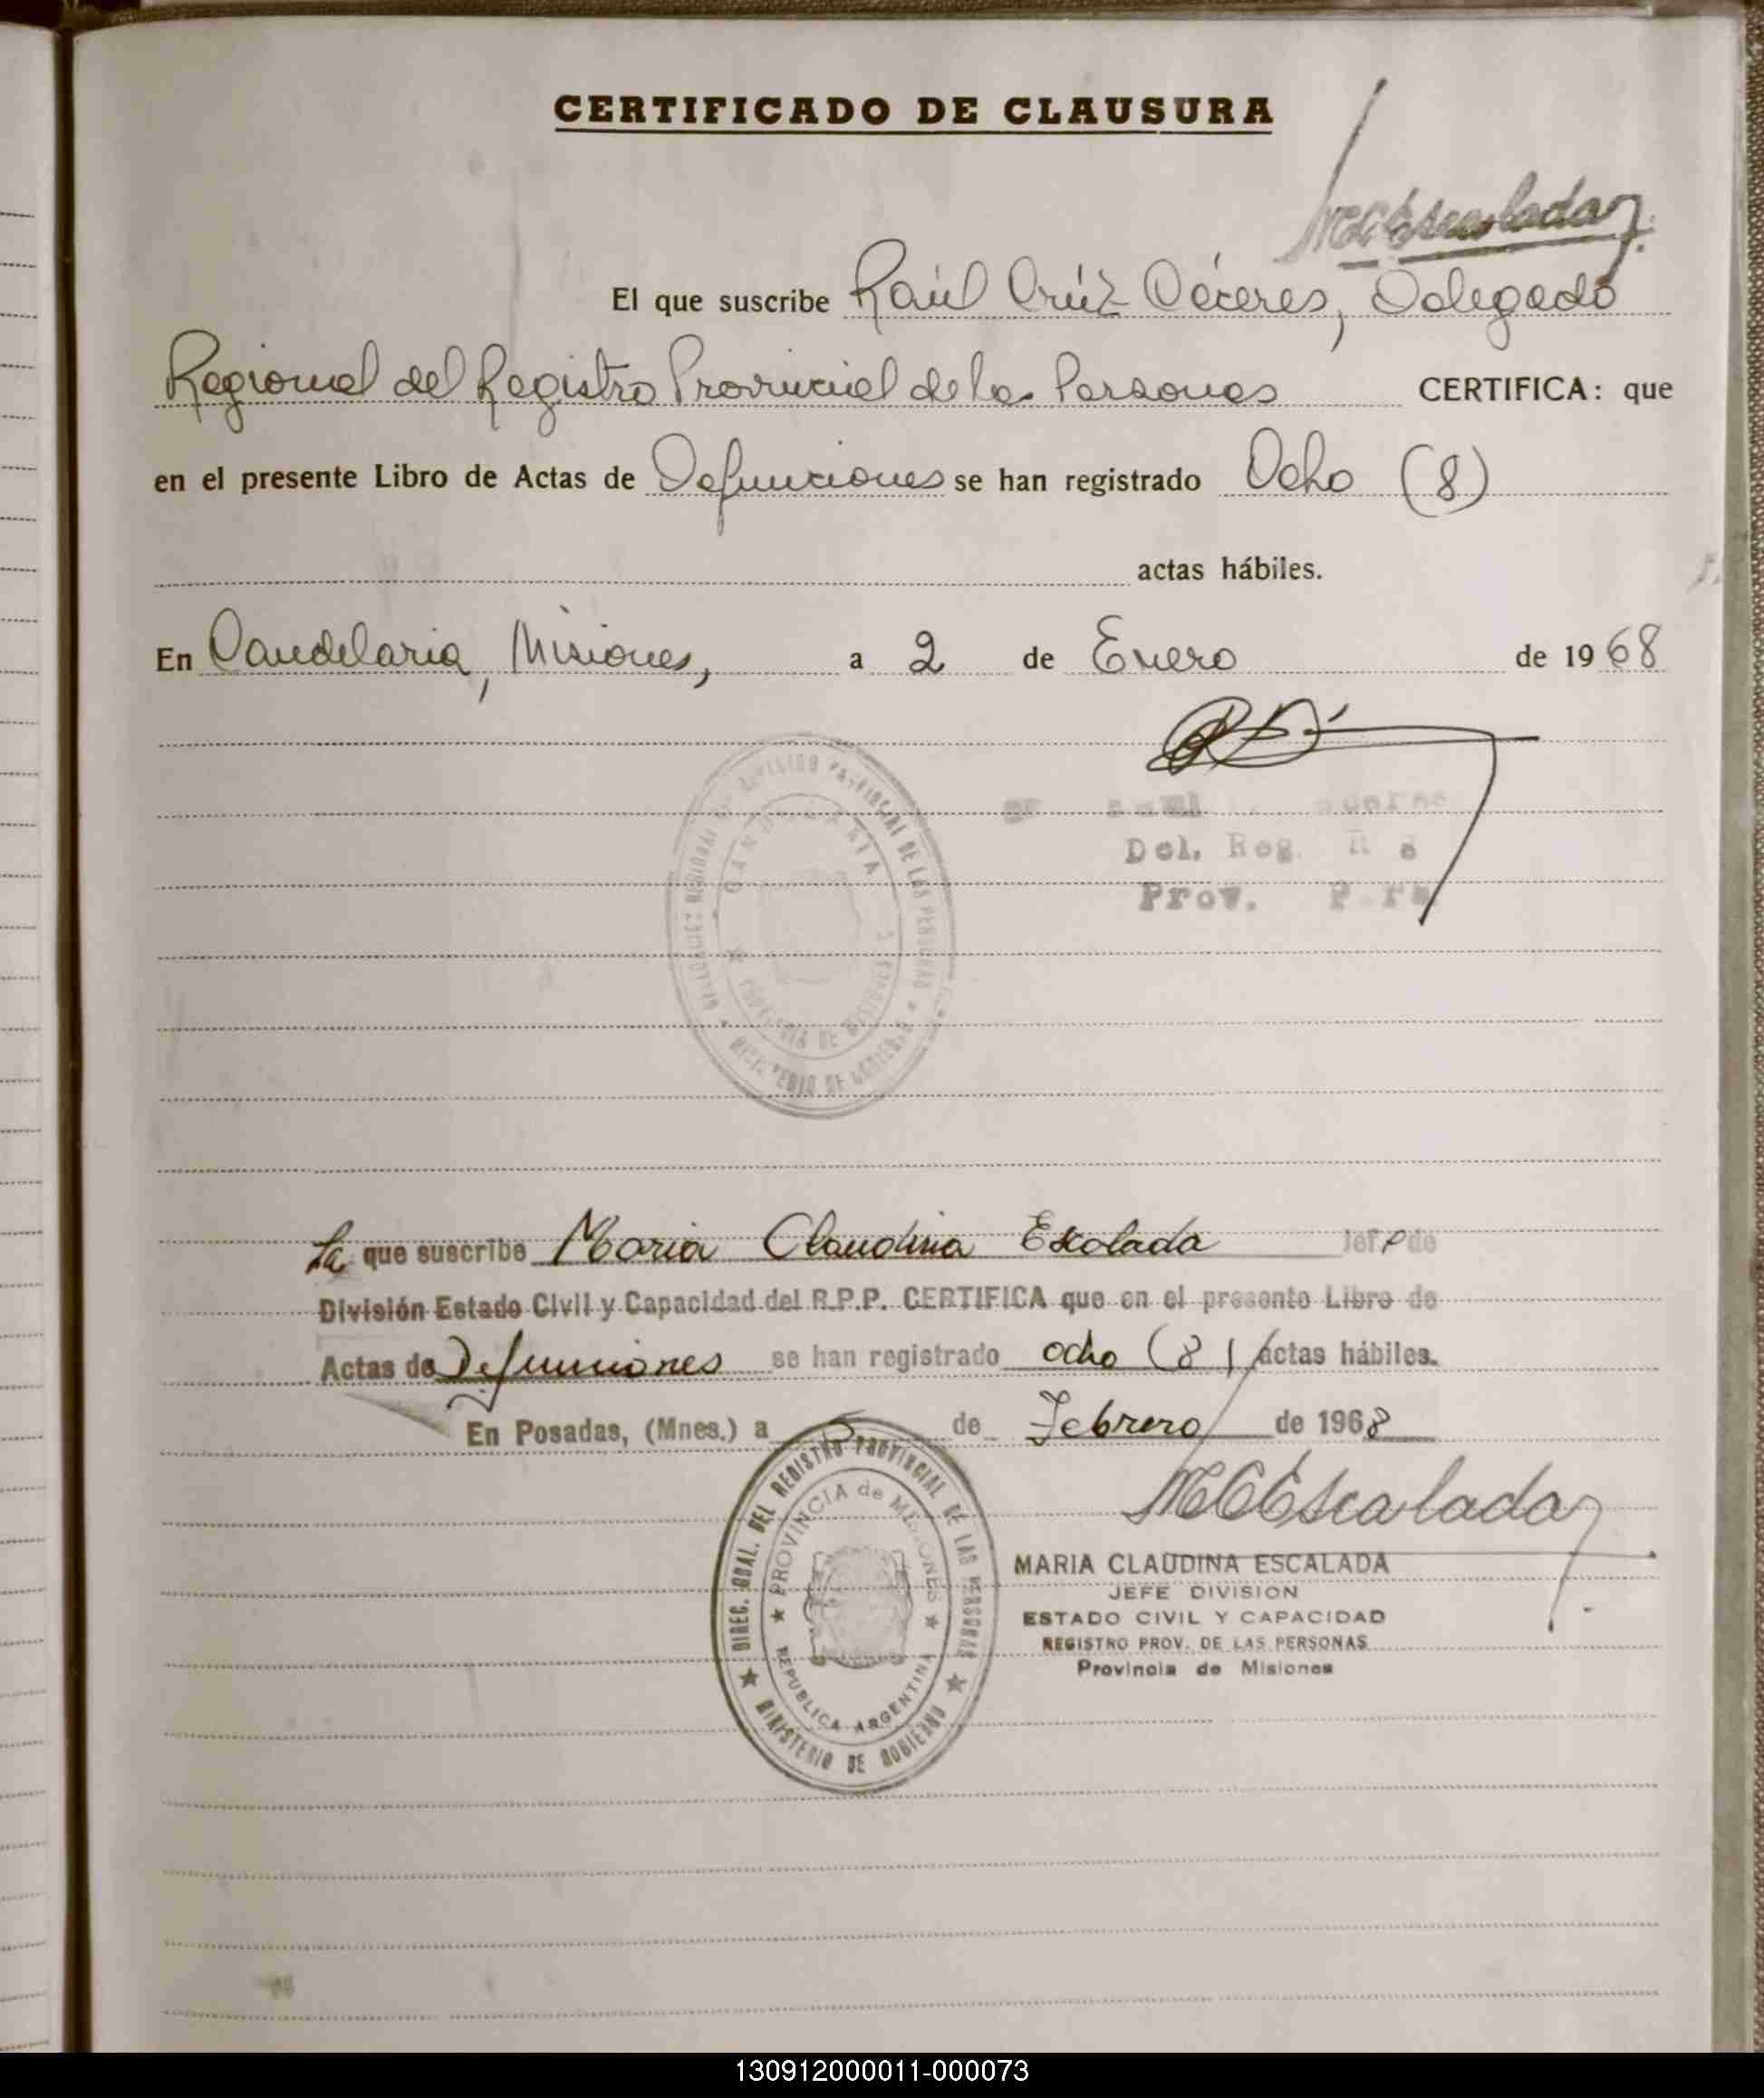 CERTIFICADO DE CLAUSURA
MCEscalada
El que suscribe Raúl Crúz Cáceres, Delegado
Regional del Registro Provincial de las Personas CERTIFICA: que
en el presente Libro de Actas de Defunciones se han registrado Ocho (8)
actas hábiles.
En Candelaria, Misiones, a 2 de Enero de 1968
Del. Reg.
Prov.
CANDELARIA
PROVINCIA DE MISIONES
MINISTERIO DE GOBIERNO
La que suscribe Maria Claudina Escalada Jefe de
División Estado Civil y Capacidad del R.P.P. CERTIFICA que en el presente Libro de
Actas de Defunciones se han registrado ocho (8) actas hábiles.
En Posadas, (Mnes.) a 5 de Febrero de 1968
DIREC. GRAL. DEL REGISTRO PROVINCIAL DE LAS PERSONAS
PROVINCIA de MISIONES
REPUBLICA ARGENTINA
MINISTERIO DE GOBIERNO
MCEscalada
MARIA CLAUDINA ESCALADA
JEFE DIVISION
ESTADO CIVIL Y CAPACIDAD
REGISTRO PROV. DE LAS PERSONAS
Provincia de Misiones
130912000011-000073